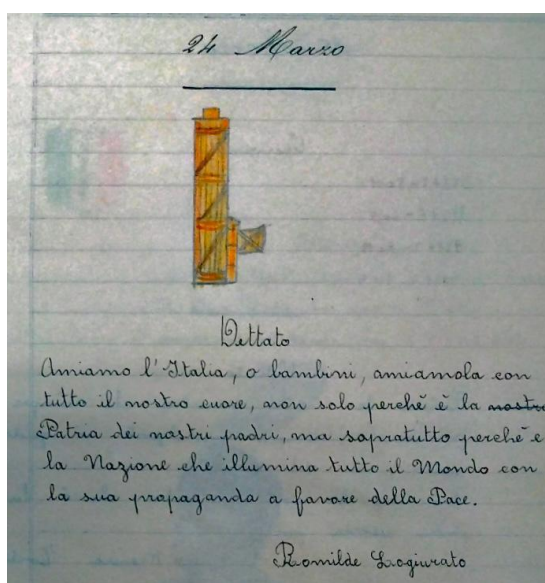 24 Marzo
Dettato
Amiamo l'Italia, o bambini, amiamola con
tutto il nostro cuore, non solo perchè è la nostra
Patria dei nostri padri, ma sopratutto perchè è
la Nazione che illumina tutto il Mondo con
la sua propaganda a favore della Pace.
Romilde Logiurato